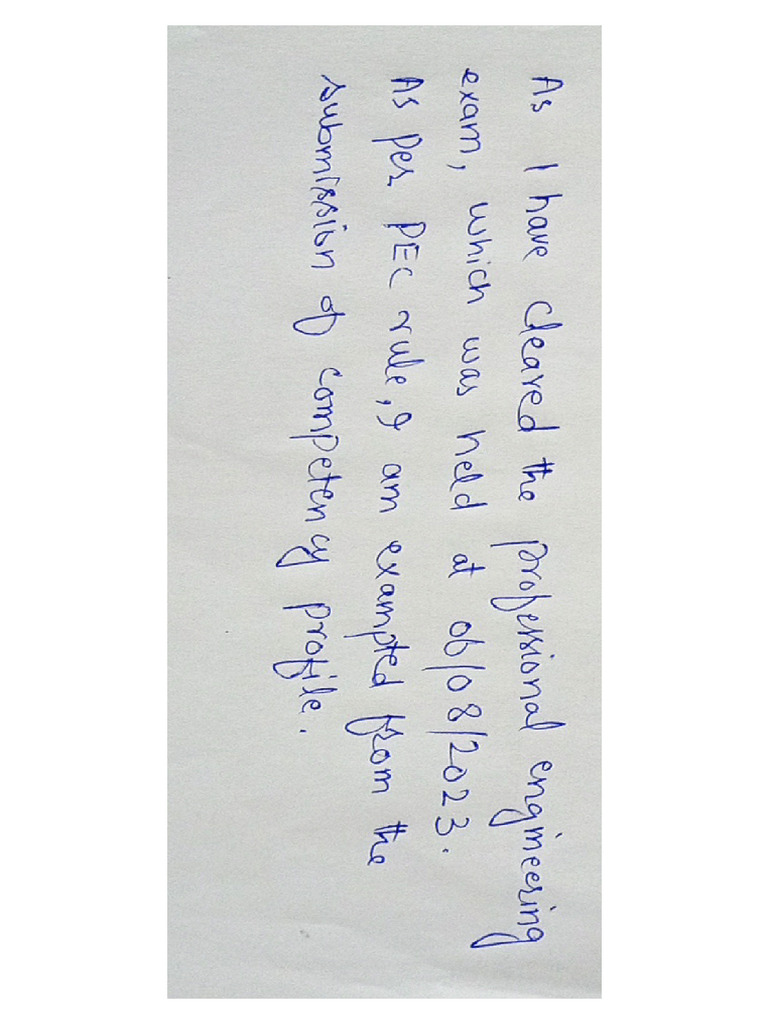 As I have cleared the professional engineering
exam, which was held at 06/08/2023.
As per PEC rule, I am exampted from the
submission of competency profile.